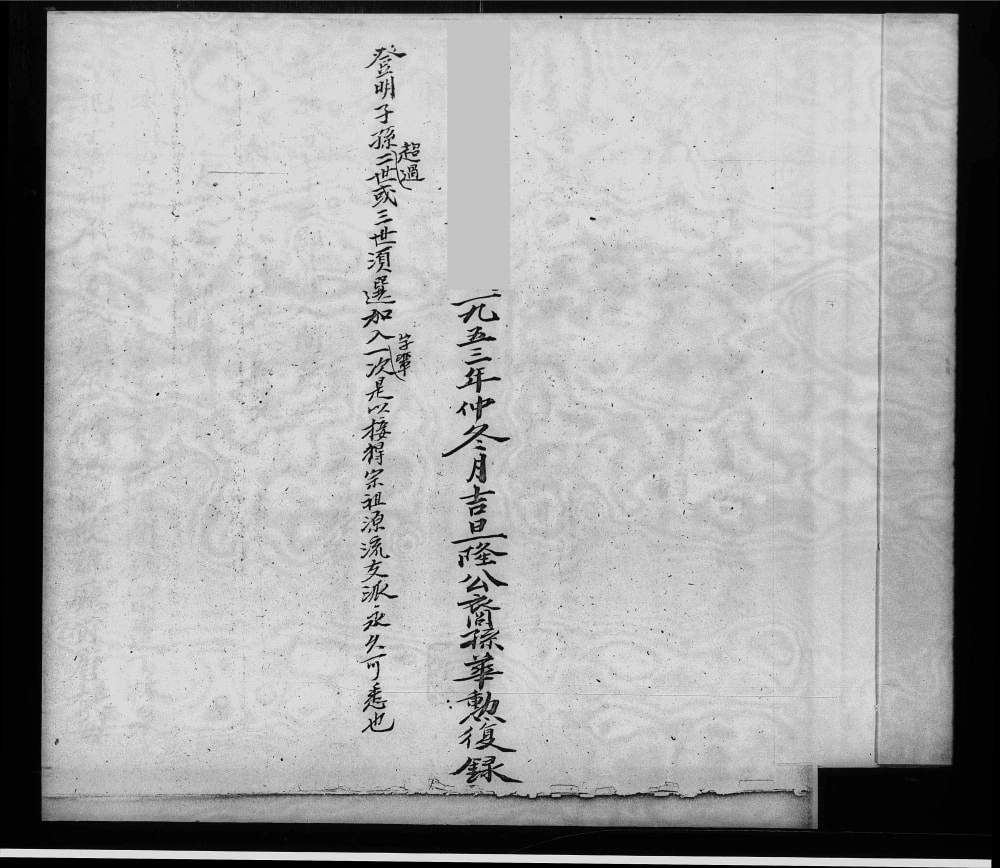 一九五三年仲冬月吉旦隆公裔孫華勲復録
登明子孫超過二世或三世須選加入字輩一次是以接得宗祖源流支派永久可悉也